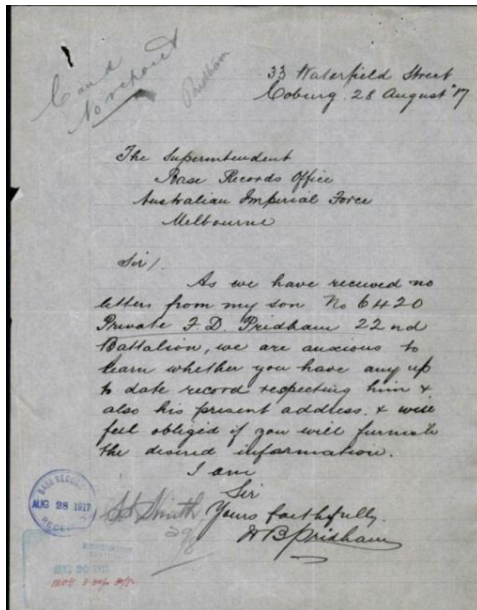 C and
No report
Pridham
33 Waterfield Street
Coburg. 28 August '17
The Superintendent
Base Records Office
Australian Imperial Force
Melbourne
Sir/.
As we have received no
letters from my son No 6420
Private F. D. Pridham 22nd
Battalion, we are anxious to
learn whether you have any up
to date record respecting him &
also his present address. & will
feel obliged if you will furnish
the desired information.
I am
Sir
Yours faithfully.
H B Pridham
BASE RECORDS
AUG 28 1917
RECEIVED